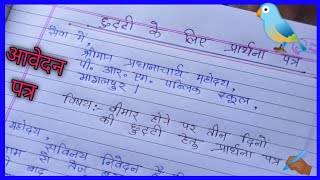 छुट्टी के लिए प्रार्थना पत्र
सेवा में,
श्रीमान प्रधानाचार्य महोदय,
पी. आर. एम. पब्लिक स्कूल,
भागलपुर।
आवेदन
पत्र
विषय:- बीमार होने पर तीन दिनों
की छुट्टी हेतु प्रार्थना पत्र
महोदय,
सविनय निवेदन है
से तेज